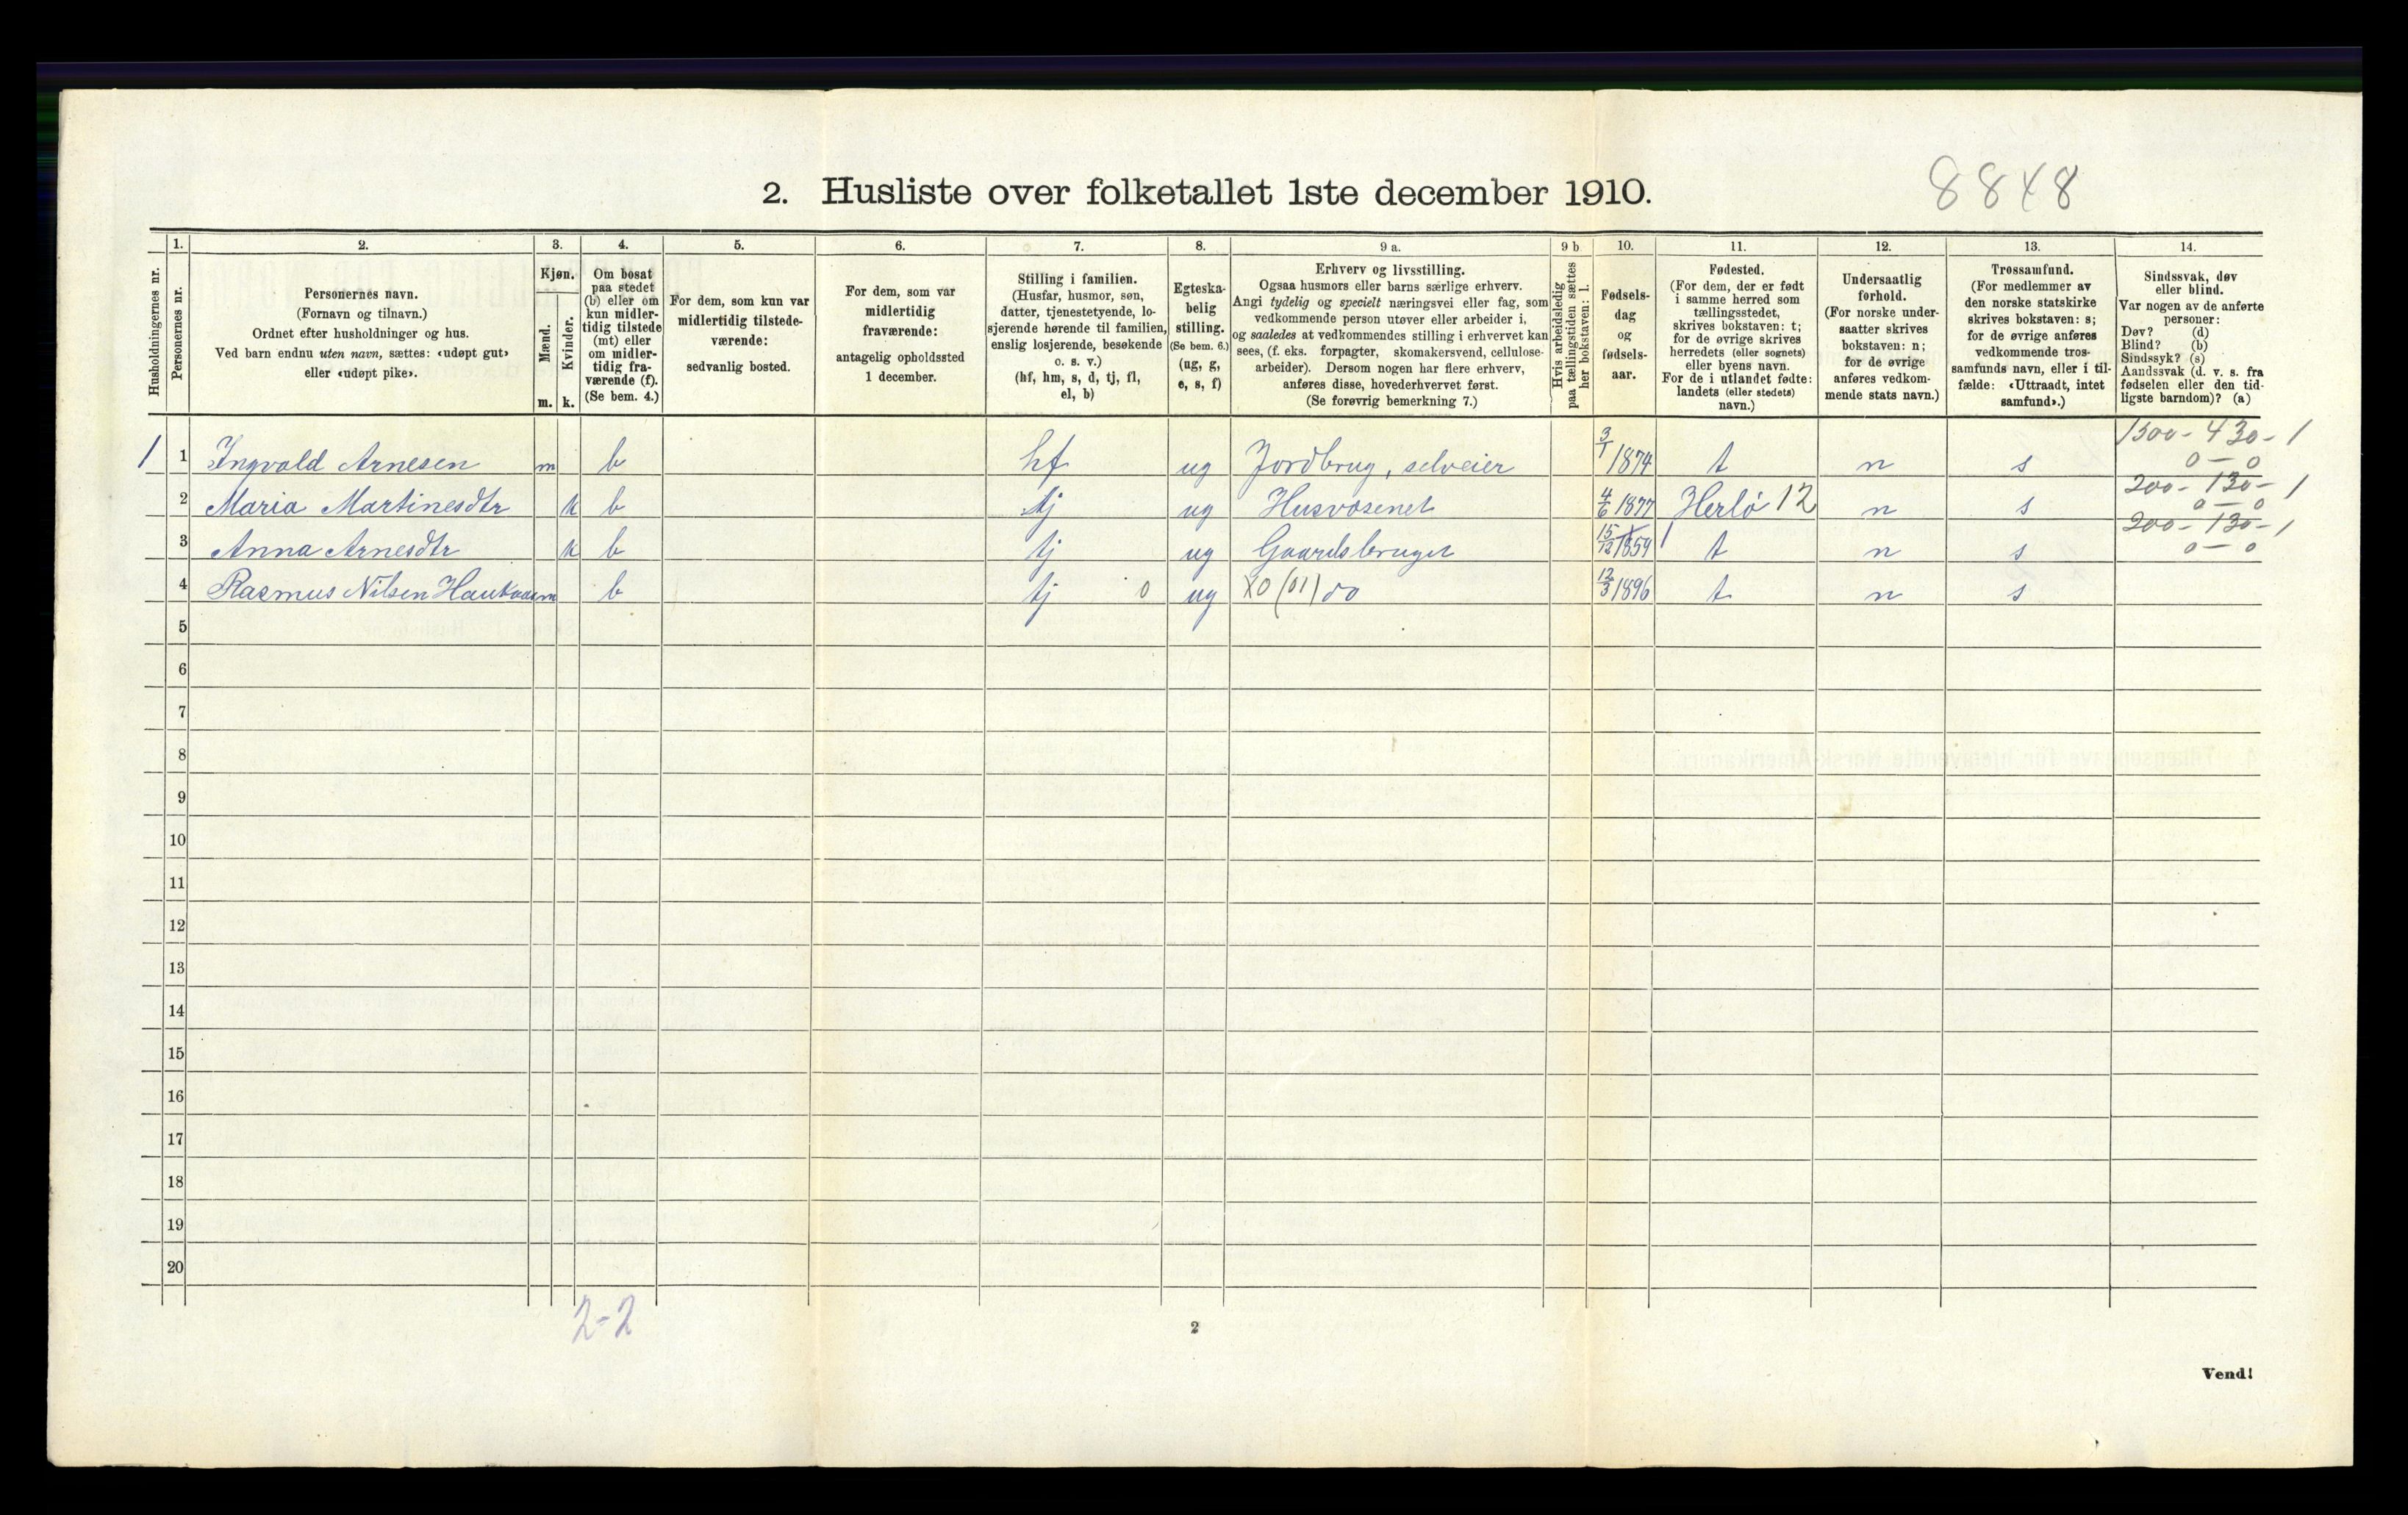 2. Husliste over folketallet 1ste december 1910.
8848
Husholdningernes nr.
1.
Personernes nr.
2.
Personernes navn.
(Fornavn og tilnavn.)
Ordnet efter husholdninger og hus.
Ved barn endnu uten navn, sættes: «udøpt gut»
eller «udøpt pike».
3.
Kjøn.
Mænd.
Kvinder.
m.
k.
4.
Om bosat
paa stedet
(b) eller om
kun midler-
tidig tilstede
(mt) eller
om midler-
tidig fra-
værende (f).
(Se bem. 4.)
5.
For dem, som kun var
midlertidig tilstede-
værende:
sedvanlig bosted.
6.
For dem, som var
midlertidig
fraværende:
antagelig opholdssted
1 december.
7.
Stilling i familien.
(Husfar, husmor, søn,
datter, tjenestetyende, lo-
sjerende hørende til familien,
enslig losjerende, besøkende
o. s. v.)
(hf, hm, s, d, tj, fl,
el, b)
8.
Egteska-
belig
stilling.
(Se bem. 6.)
(ug, g,
e, s, f)
9 a.
Erhverv og livsstilling.
Ogsaa husmors eller barns særlige erhverv.
Angi tydelig og specielt næringsvei eller fag, som
vedkommende person utøver eller arbeider i,
og saaledes at vedkommendes stilling i erhvervet kan
sees, (f. eks. forpagter, skomakersvend, cellulose-
arbeider). Dersom nogen har flere erhverv,
anføres disse, hovederhvervet først.
(Se forøvrig bemerkning 7.)
9 b
Hvis arbeidsledig
paa tællingstiden sættes
her bokstaven: l.
10.
Fødsels-
dag
og
fødsels-
aar.
11.
Fødested.
(For dem, der er født
i samme herred som
tællingsstedet,
skrives bokstaven: t;
for de øvrige skrives
herredets (eller sognets)
eller byens navn.
For de i utlandet fødte:
landets (eller stedets)
navn.)
12.
Undersaatlig
forhold.
(For norske under-
saatter skrives
bokstaven: n;
for de øvrige
anføres vedkom-
mende stats navn.)
13.
Trossamfund.
(For medlemmer av
den norske statskirke
skrives bokstaven: s;
for de øvrige anføres
vedkommende tros-
samfunds navn, eller i til-
fælde: «Uttraadt, intet
samfund».)
14.
Sindssvak, døv
eller blind.
Var nogen av de anførte
personer:
Døv? (d)
Blind? (b)
Sindssyk? (s)
Aandssvak (d. v. s. fra
fødselen eller den tid-
ligste barndom)? (a)
1 1 Ingvald Arnesen m b hf ug Jordbrug, selveier 3/1 1874 t n s 1500-430-1 0-0
2 Maria Martinesdtr k b tj ug Husvæsenet 4/6 1877 Herlø 12 n s 200-130-1 0-0
3 Anna Arnesdtr k b tj ug Gaardsbruget 15/12 1859 t n s 200-130-1 0-0
4 Rasmus Nilsen Haukaas m b tj 0 ug X0 (01) do 12/3 1896 t n s
5
6
7
8
9
10
11
12
13
14
15
16
17
18
19
20
2-2
2
Vend!